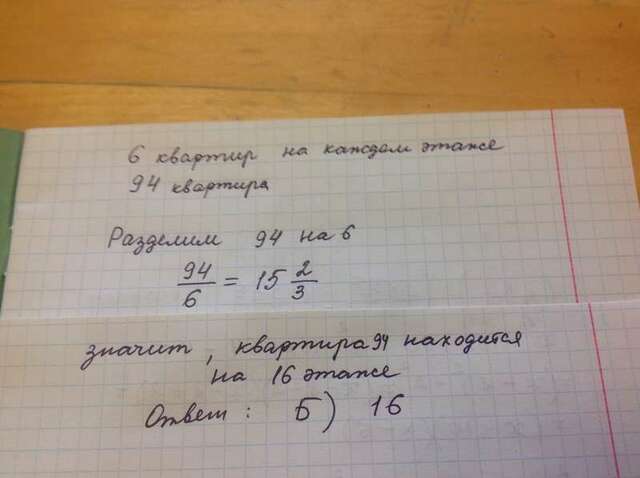 6 квартир на каждом этаже
94 квартира
Разделим 94 на 6
94/6 = 15 2/3
значит, квартира 94 находится
на 16 этаже
Ответ: Б) 16